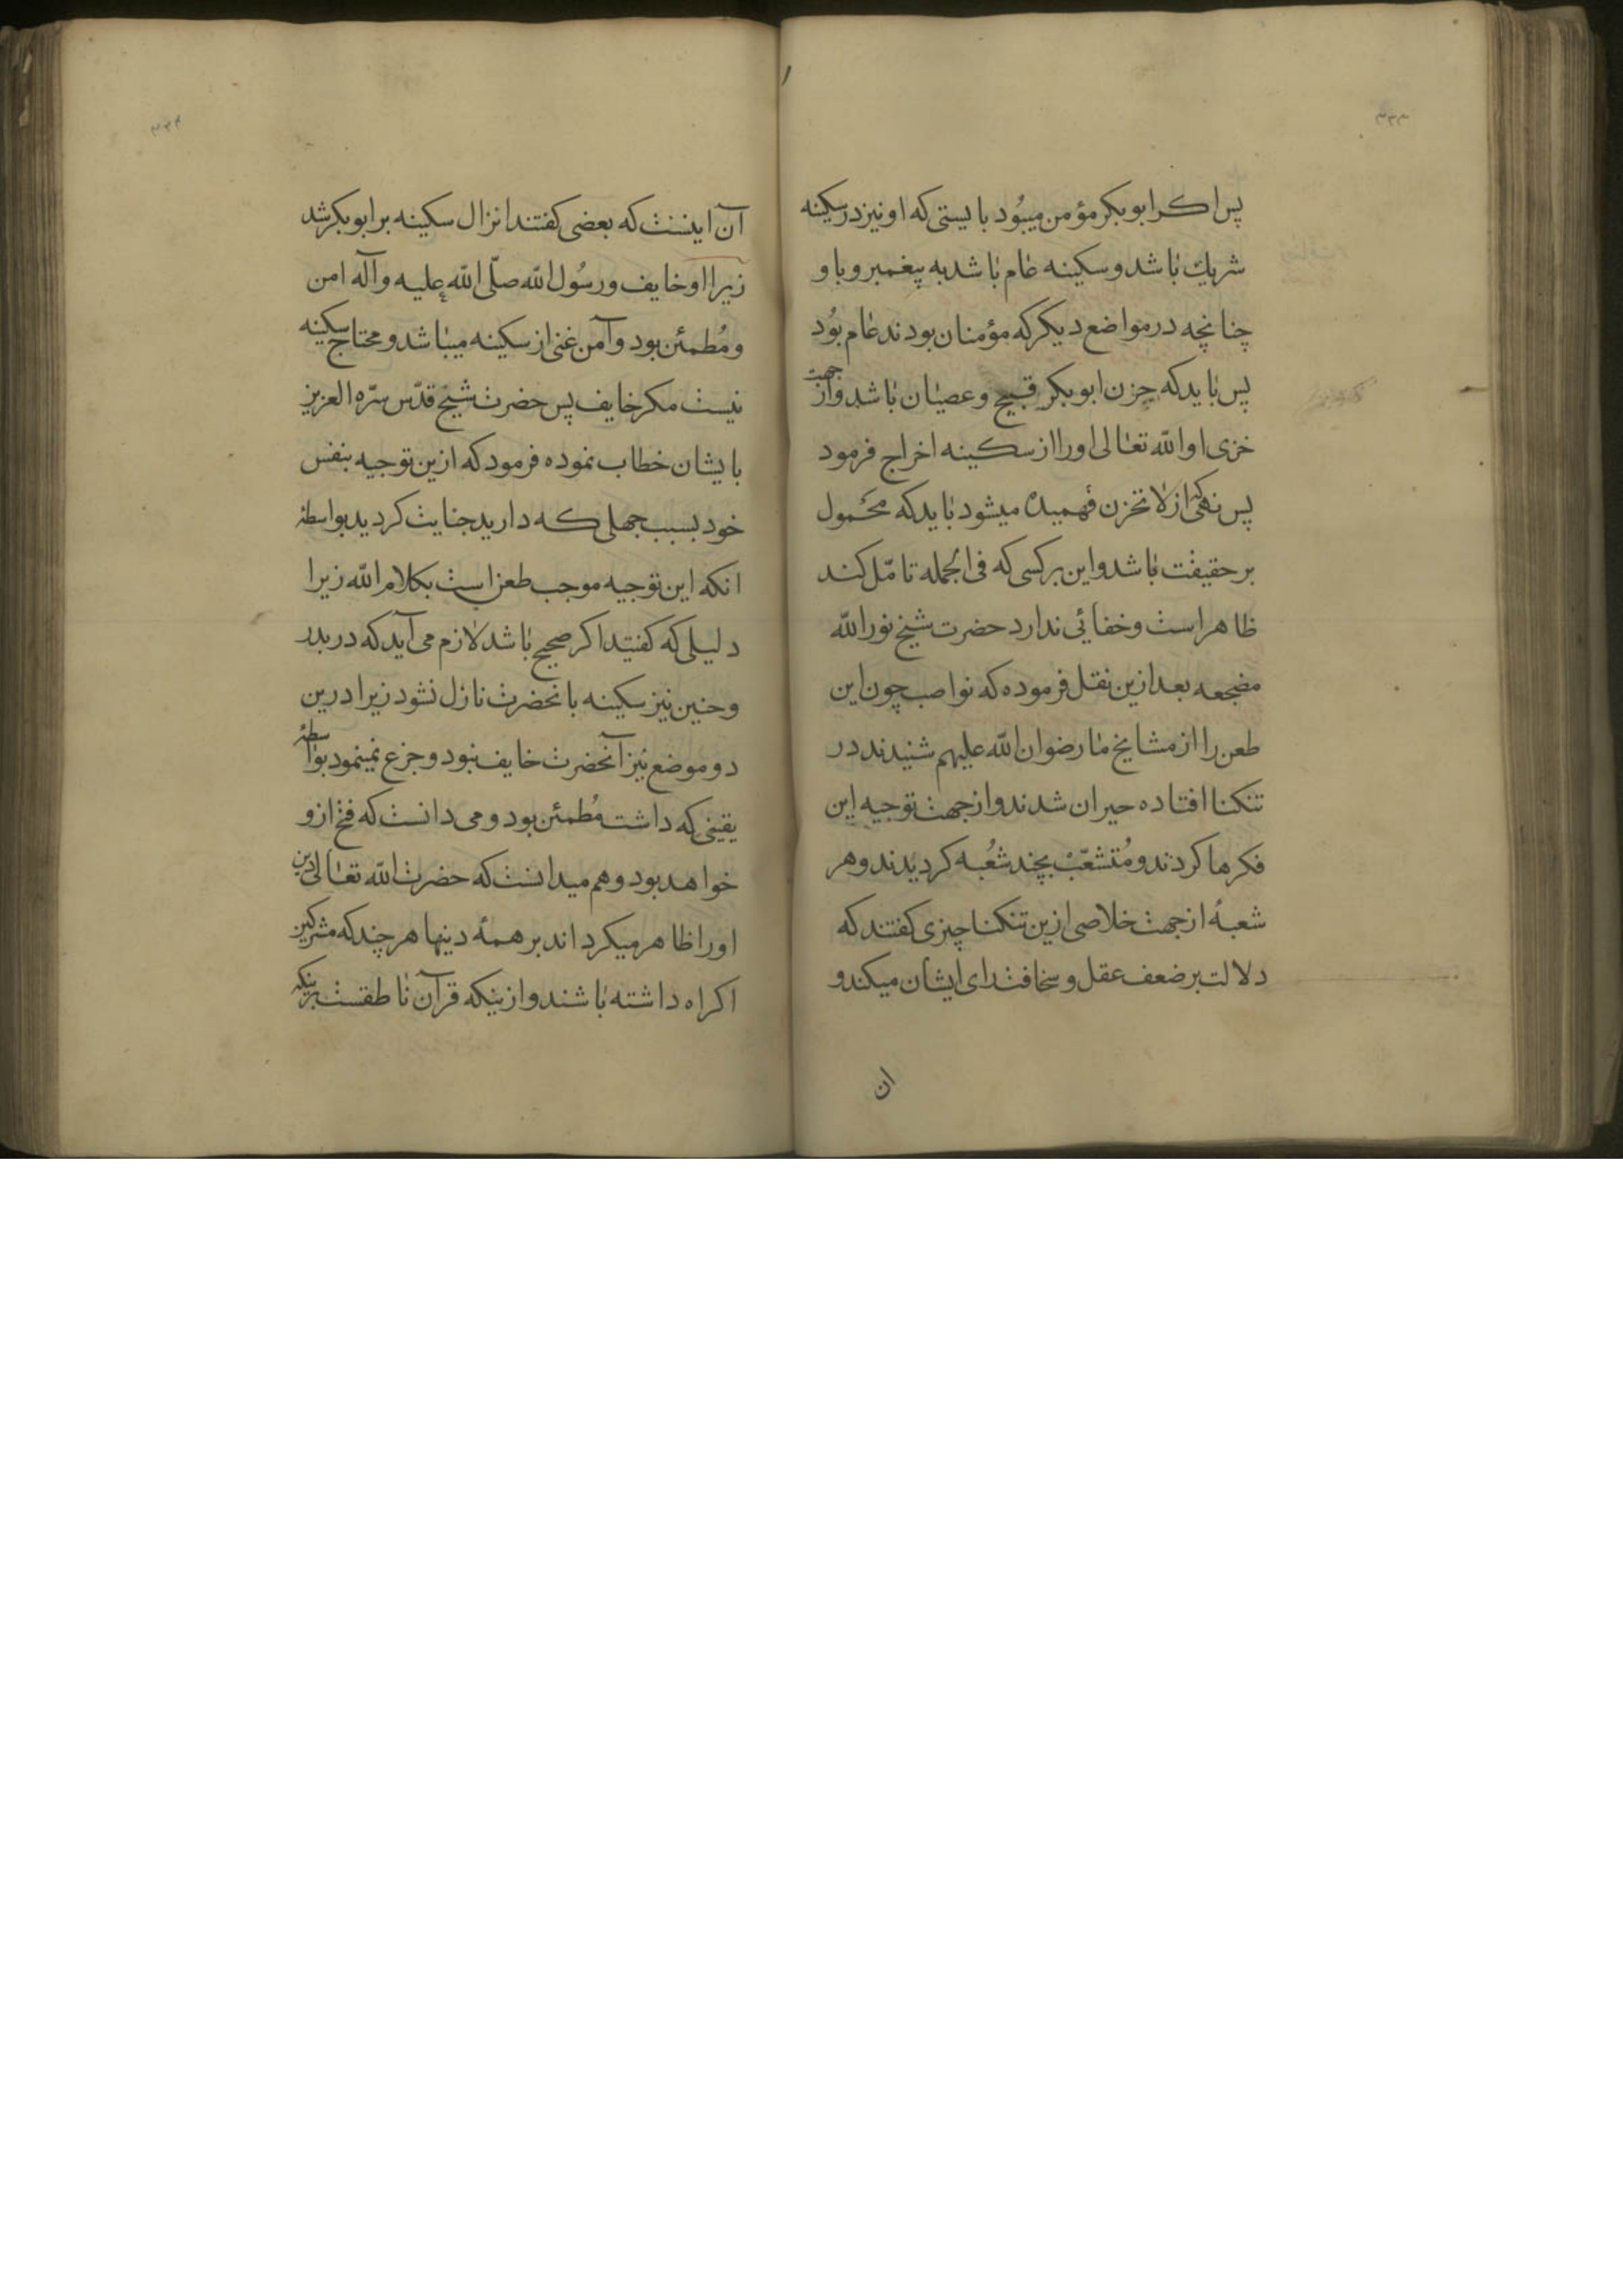 ۳۳۳
پس اکر ابوبکر مؤمن میبُود بایستی که او نیز در سکینه
شریك باشد و سکینه عام باشد به پیغمبر و باو
چنانچه در مواضع دیکر که مؤمنان بودند عام بُود
پس باید که حزن ابوبکر قبیح و عصیان باشد و از جهت
خزی او الله تعالی او را از سکینه اخراج فرمود
پس نهی که از لا تحزن فهمیده میشود باید که محمول
بر حقیقت باشد و این بر کسی که فی الجمله تامّل کند
ظاهر است و خفائی ندارد حضرت شیخ نور الله
مضجعه بعد ازین نقل فرموده که نواصب چون این
طعن را از مشایخ ما رضوان الله علیهم شنیدند در
تنکنا افتاده حیران شدند و از جهت توجیه این
فکرها کردند و مُتشعّبْ بچند شُعبه کردیدند و هر
شعبهٔ از جهت خلاصی ازین تنکنا چیزی کفتند که
دلالت بر ضعف عقل و سخافت رای ایشان میکند و
ان
۳۳۴
آن اینست که بعضی کفتند انزال سکینه بر ابوبکر شد
زیرا او خایف و رسُول الله صلّی الله علیه و آله امن
و مُطمئن بود و آمن غنی از سکینه میباشد و محتاج سکینه
نیست مکر خایف پس حضرت شیخ قدّس سرّه العزیز
بایشان خطاب نموده فرمود که ازین توجیه بنفس
خود بسبب جهلی که دارید جنایت کردید بواسطهٔ
انکه این توجیه موجب طعن است بکلام الله زیرا
دلیلی که کفتید اکر صحیح باشد لازم می آید که در بدر
و حنین نیز سکینه بانحضرت نازل نشود زیرا درین
دو موضع نیز آنحضرت خایف نبود و جزع نمینمود بواسطهٔ
یقینی که داشت مُطمئن بود و می دانست که فتح از و
خواهد بود و هم میدانست که حضرت الله تعالی دین
او را ظاهر میکرداند بر همهٔ دینها هر چند که مشرکین
اکراه داشته باشند و ازینکه قرآن ناطقست برینکه